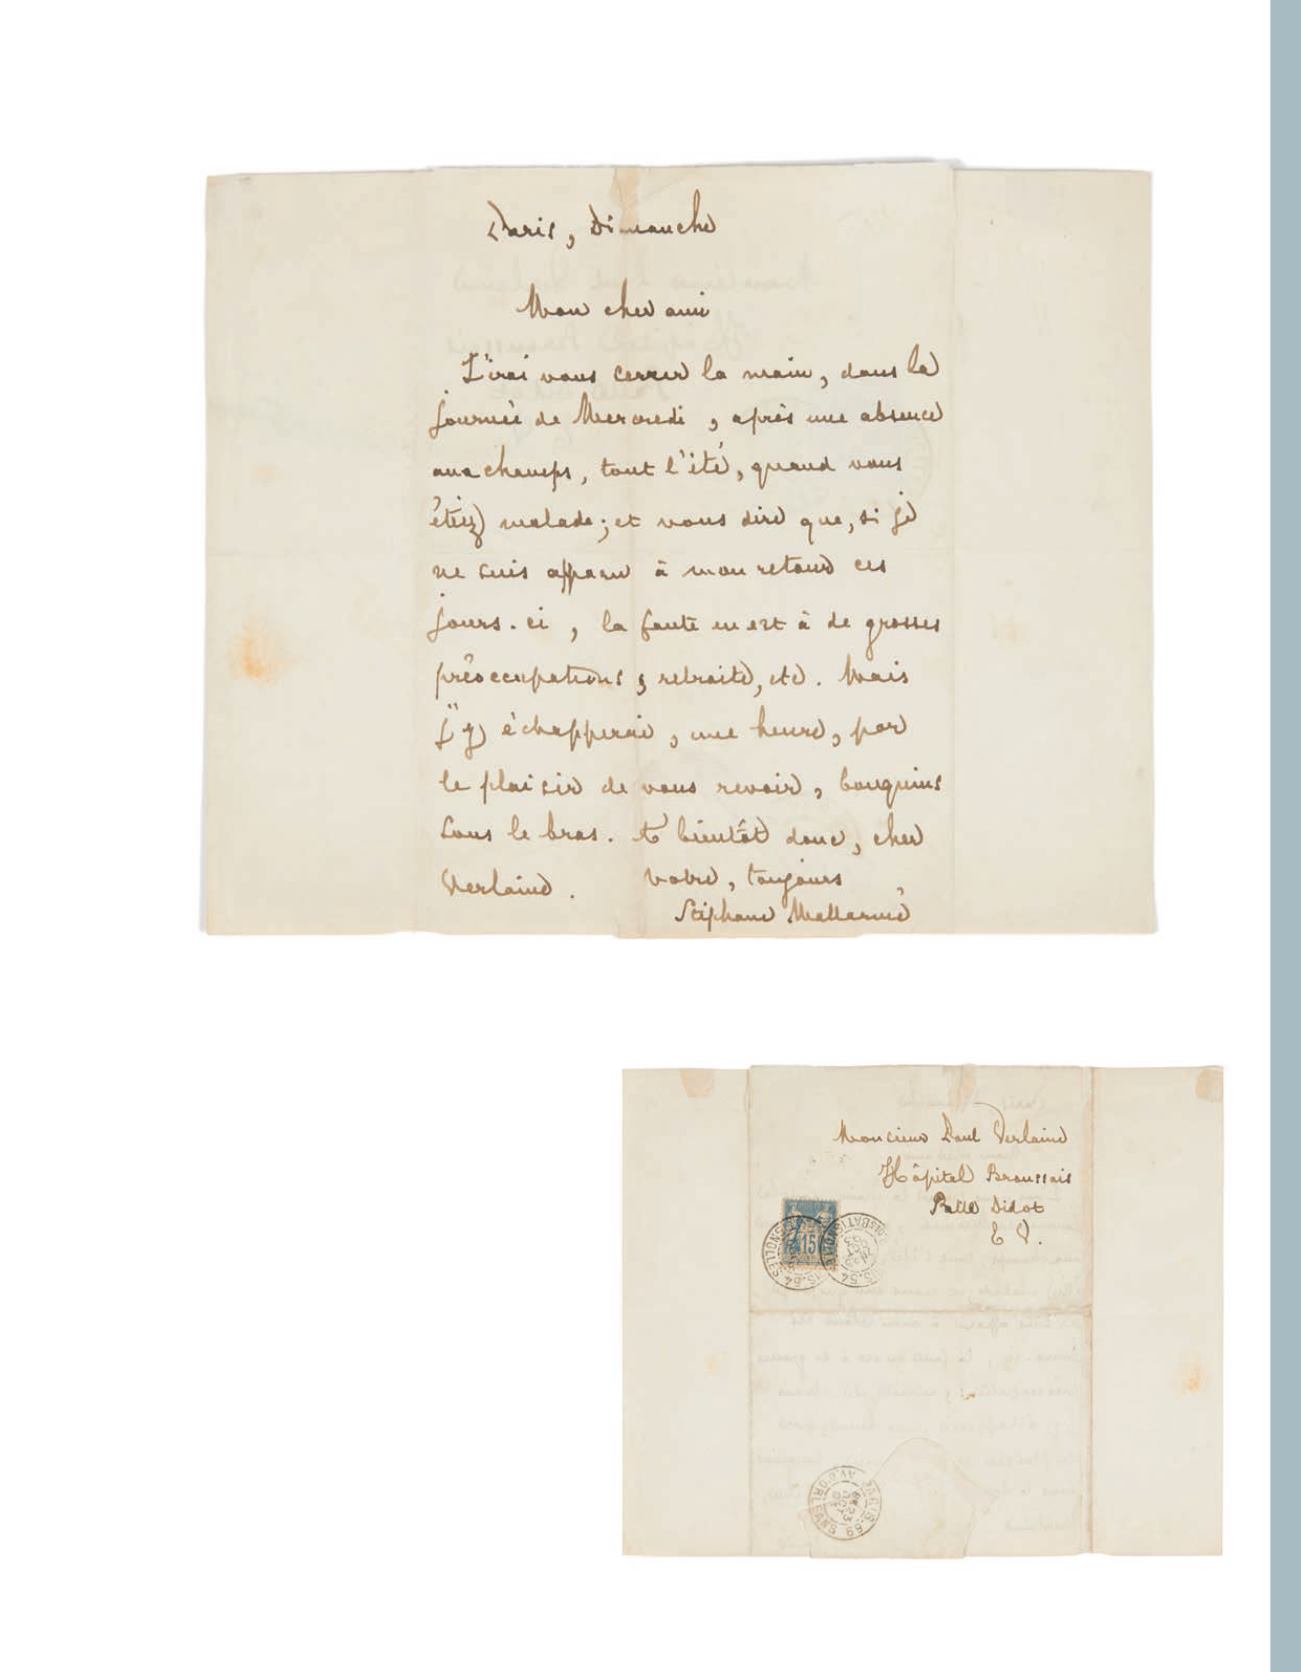 Paris, Dimanche
Mon cher ami
J'irai vous serrer la main, dans la
journée de Mercredi, après une absence
aux champs, tout l'été, quand vous
étiez malade; et vous dire que, si je
ne suis apparu à mon retour ces
jours-ci, la faute en est à de grosses
préoccupations, retraite, etc. Mais
j'y échapperai, une heure, par
le plaisir de vous revoir, bouquins
sous le bras. À bientôt donc, cher
Verlaine. Votre, toujours
Stéphane Mallarmé
Monsieur Paul Verlaine
Hôpital Broussais
Rue Didot
E V.
15
PARIS.69
AV. D'ORLEANS